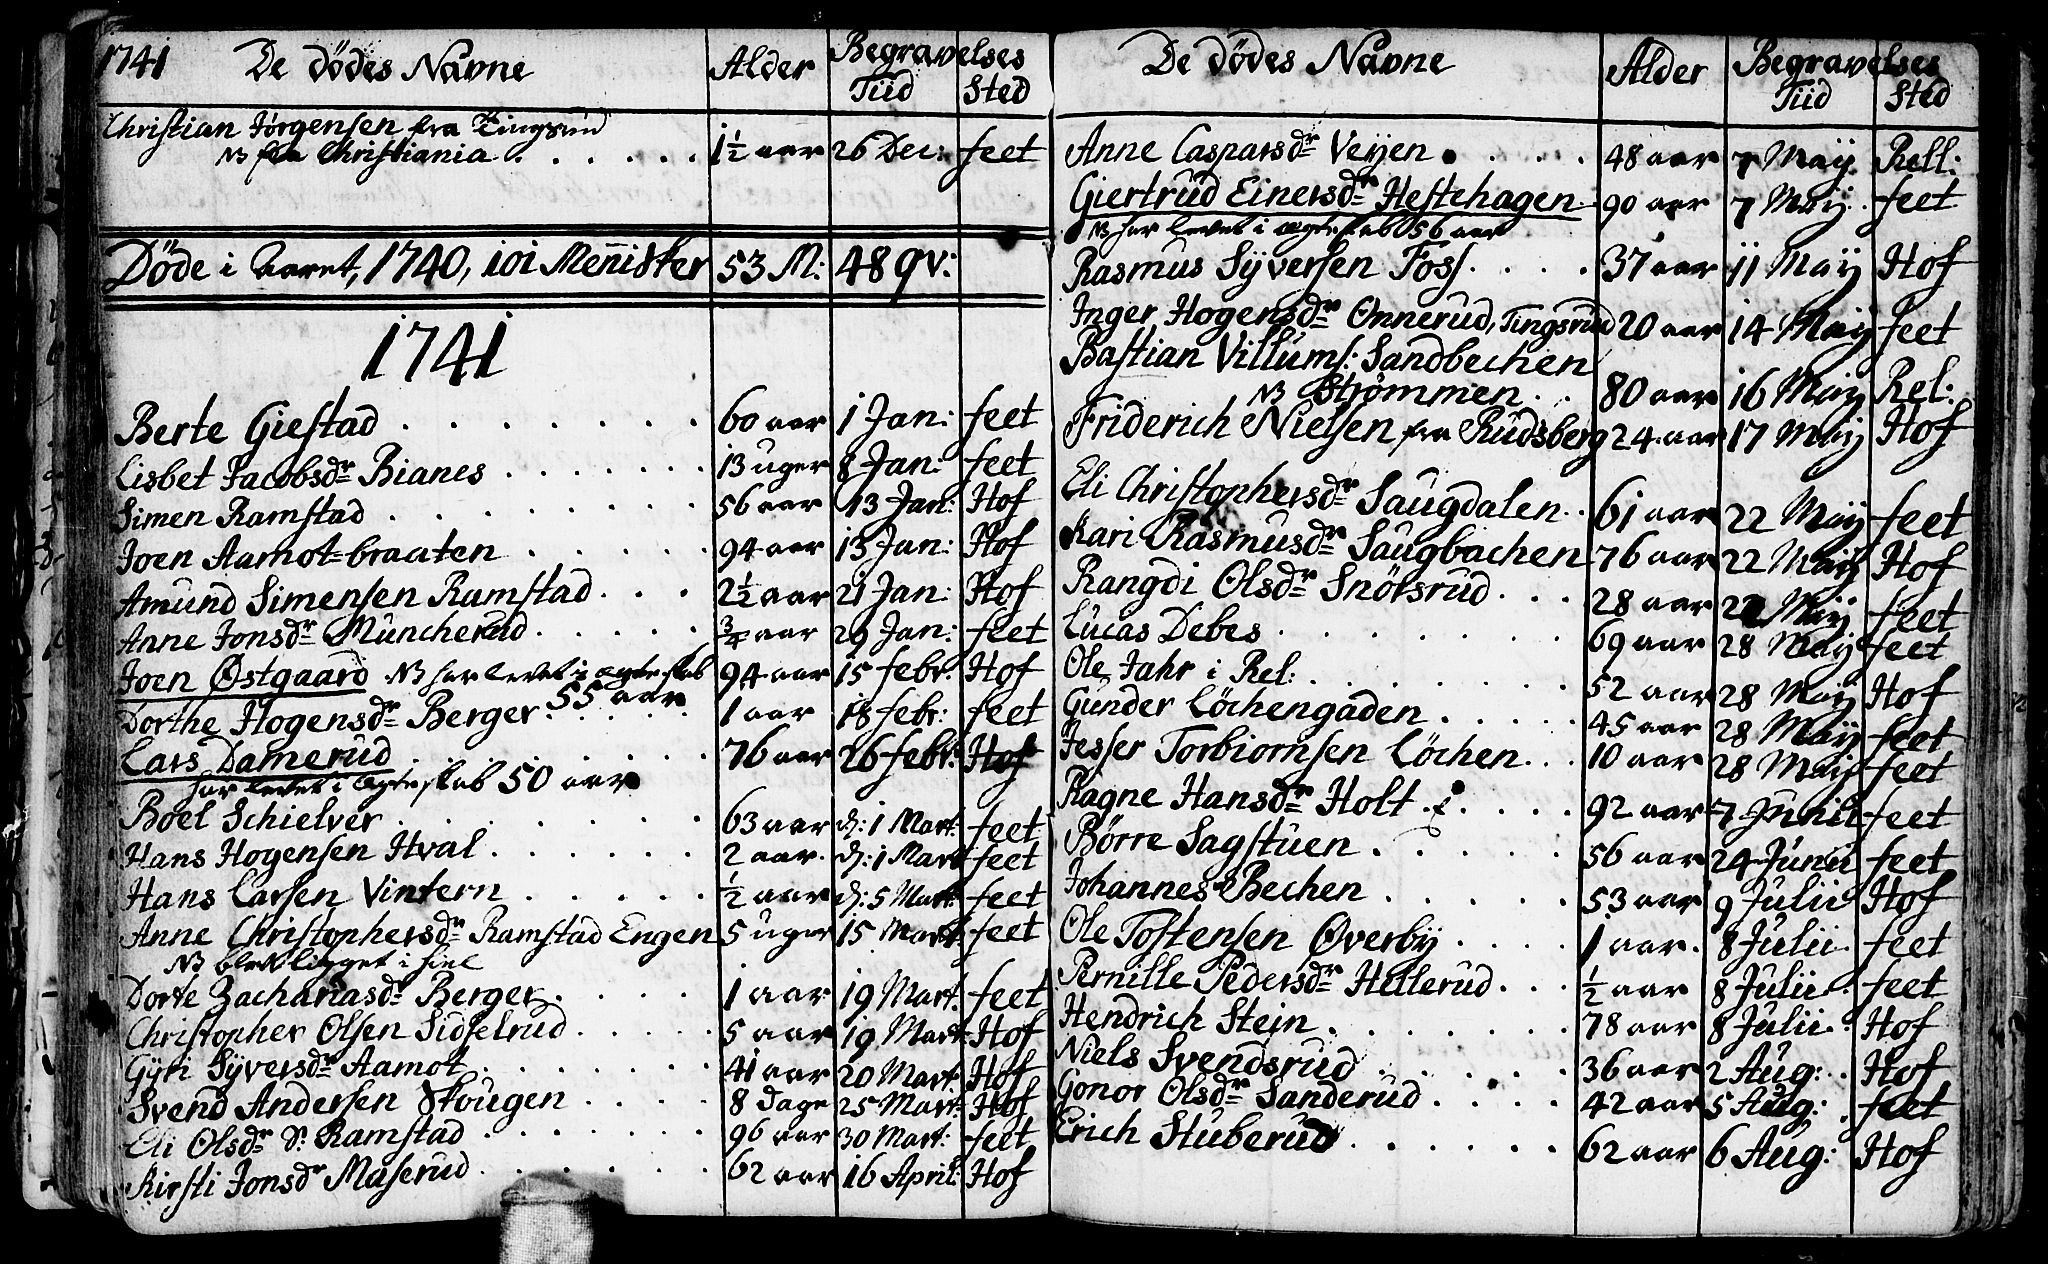 1741 De Dödes Navne Alder Begravelses
Tiid Sted
Christian Jörgensen fra Tingsrud
NB fra Christiania . . . . . . 1½ aar 26 Dec: feet
Döde i Aaret, 1740, 101 Meñisker 53 M: 48 qv:
1741
Berte Giestad . . . . . . . . 60 aar 1 Jan: feet
Lisbet Jacobsdr Bianes . . . . . . 13 uger 8 Jan: feet
Simen Ramstad . . . . . . . . 56 aar 13 Jan: Hof
Joen Aamot-braaten . . . . . 94 aar 13 Jan: Hof
Amund Simensen Ramstad . . . 2½ aar 21 Jan: Hof
Anne Jonsdr Müncherud . . . . . ¾ aar 29 Jan: feet
Joen Østgaard NB har levet i ægteskab 94 aar 15 febr: Hof
55 aar
Dorthe Hogensdr Berger . . . . 1 aar 18 febr: feet
Lars Damerud . . . . . . . 76 aar 26 febr: Hof
har levet i ægteskab 50 aar
Boel Schielver . . . . . . . . 63 aar d: 1 Mart: feet
Hans Hogensen Hval . . . . . . 2 aar. d: 1 Mart feet
Hans Larsen Vintern . . . . . ½ aar d: 5 Mart: feet
Anne Christophersdr Ramstad Engen 5 uger 15 Mart: feet
NB blev ligget i hiel
Dorte Zachariasdr Berger . . . . 1 aar 19 Mart: feet
Christopher Olsen Sidselrud . . . . . 5 aar 19 Mart: Hof
Gyri Syversdr Aamot . . . . . . . 41 aar 20 Mart: Hof
Svend Andersen Skougen . . . . 8 Dage 25 Mart: Hof
Eli Olsdr S: Ramstad . . . . . . . 96 aar 30 Mart: feet
Kirsti Jonsdr Maserud . . . . . . . 62 aar 16 April: Hof
De Dödes Navne Alder Begravelses
Tiid Sted
Anne Caspersdr Veyen . . . . 48 aar 7 Maij Rell:
Giertrud Einersdr Hestehagen 90 aar 7 Maij. feet
NB har levet i ægteskab 56 aar
Rasmus Syversen Foss . . . . 37 aar 11 Maij Hof
Inger Hogensdr Onnerud, Tingsrud 20 aar 14 Maij feet
Bastian Villums: Sandbechen
NB Strömmen . . 80 aar 16 Maij Rel:
Friderich Nielsen fra Rudsberg 24 aar 17 Maij Hof
Eli Christophersdr Saugdalen . . 61 aar 22 Maij feet
Kari Rasmusdr Saugbachen 76 aar 22 Maij Hof
Rangdi Olsdr Snölsrud . . . 28 aar 22 Maij feet
Lucas Debes . . . . . . . . 69 aar 28 Maij feet
Ole Jahr i Rel: . . . . . . . 52 aar 28 Maij Hof
Gunder Löchengaden . . . . . 45 aar 28 Maij feet
Jesser Torbiornsen Löchen . . . 10 aar 28 Maij feet
Ragne Hansdr Holt . . . . . 92 aar 7 Junii feet
Börre Sagstuen . . . . . . 56 aar 24 Junii feet
Johannes Bechen . . . . . . 53 aar 9 Julii Hof
Ole Tostensen Øverby . . . . 1 aar. 8 Julii. feet
Pernille Pedersdr Hellerud . . . ½ aar 8 Julii. feet
Hendrich Stein . . . . . . . 78 aar 8 Julii. Hof
Niels Svendsrud . . . . . . 36 aar 2 Aug: Hof
Gonor Olsdr Sanderud . . . . 42 aar 5 Aug: feet
Erich Stuberud . . . . . . 62 aar 6 Aug: Hof